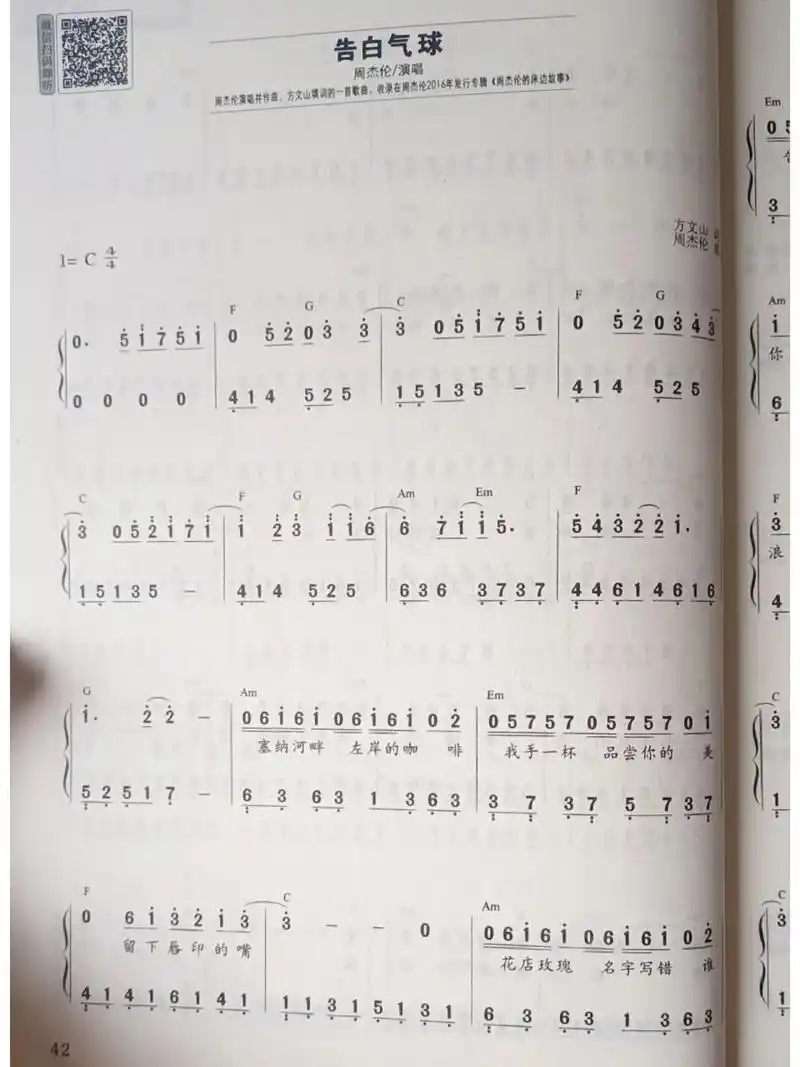 微信扫码即听
告白气球
周杰伦/演唱
周杰伦演唱并作曲，方文山填词的一首歌曲，收录在周杰伦2016年发行专辑《周杰伦的床边故事》
方文山
周杰伦
1= C 4/4
F G C F G
0. 5 1 7 5 1 0 5 2 0 3 3 3 0 5 1 7 5 1 0 5 2 0 3 4 3
0 0 0 0 4 1 4 5 2 5 1 5 1 3 5 – 4 1 4 5 2 5
C F G Am Em F
3 0 5 2 1 7 1 1 2 3 1 1 6 6 7 1 1 5. 5 4 3 2 2 1.
1 5 1 3 5 – 4 1 4 5 2 5 6 3 6 3 7 3 7 4 4 6 1 4 6 1 6
G Am Em
1. 2 2 – 0 6 1 6 1 0 6 1 6 1 0 2 0 5 7 5 7 0 5 7 5 7 0 1
塞纳河畔 左岸的咖 啡 我手一杯 品尝你的 美
5 2 5 1 7 – 6 3 6 3 1 3 6 3 3 7 3 7 5 7 3 7
F C Am
0 6 1 3 2 1 3 3 – – 0 0 6 1 6 1 0 6 1 6 1 0 2
留下唇印的嘴 花店玫瑰 名字写错 谁
4 1 4 1 6 1 4 1 1 1 3 1 5 1 3 1 6 3 6 3 1 3 6 3
42
Em
0 5
3
Am
1
你
6
F
3
浪
4
C
3
1
C
3
1